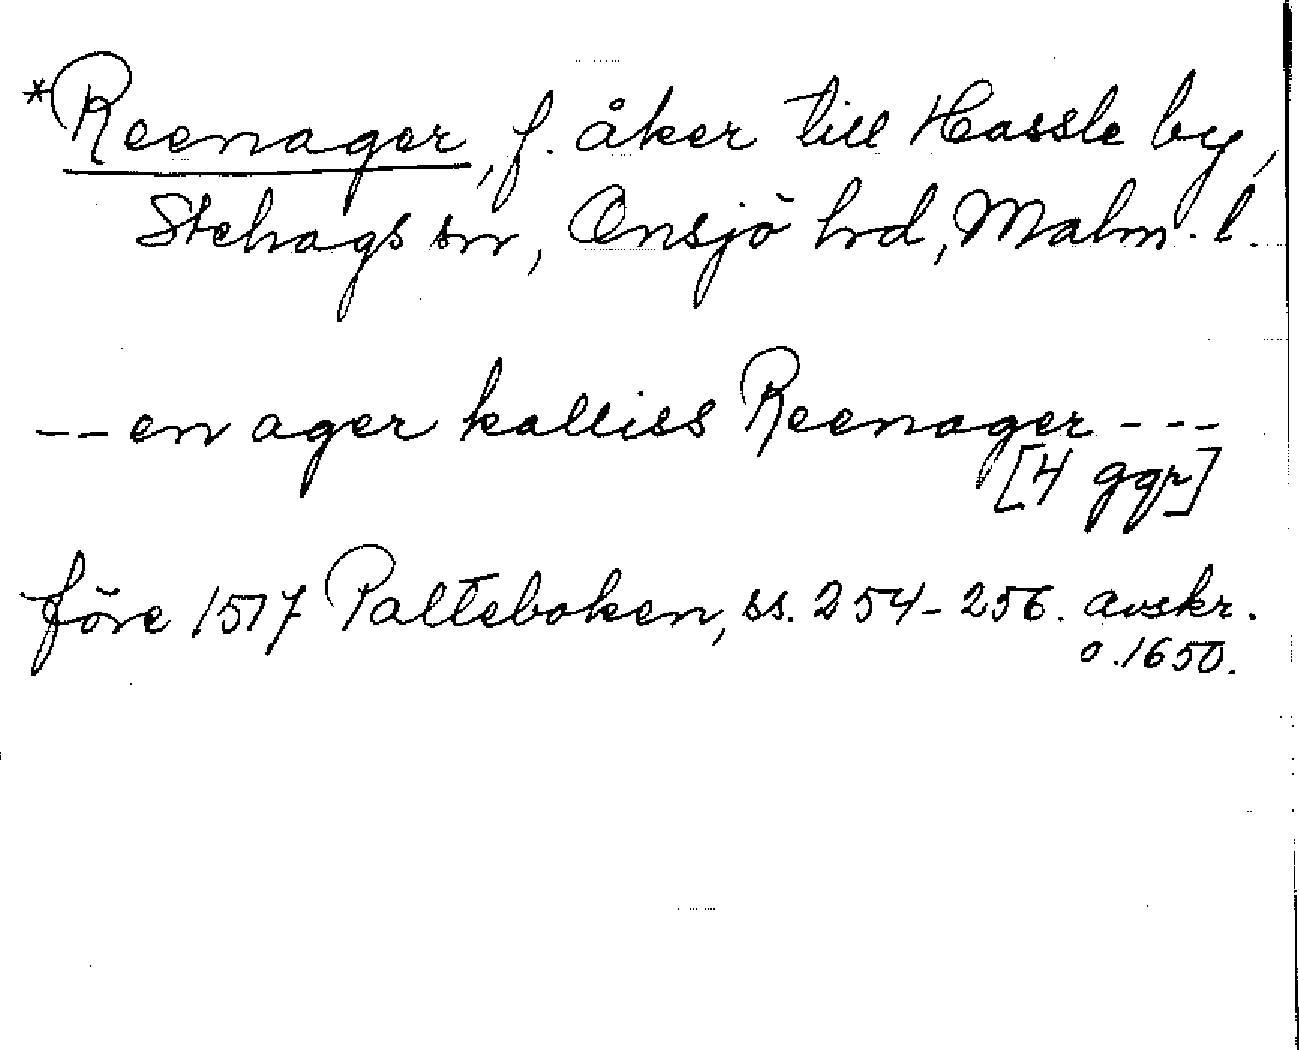 *Reenager, f. åker till Hassle by,
Stehags sn, Onsjö hrd, Malm. l.
-- en ager kalliss Reenager ---
[4 ggr]
före 1517 Palteboken, ss. 254-256. avskr.
o. 1650.